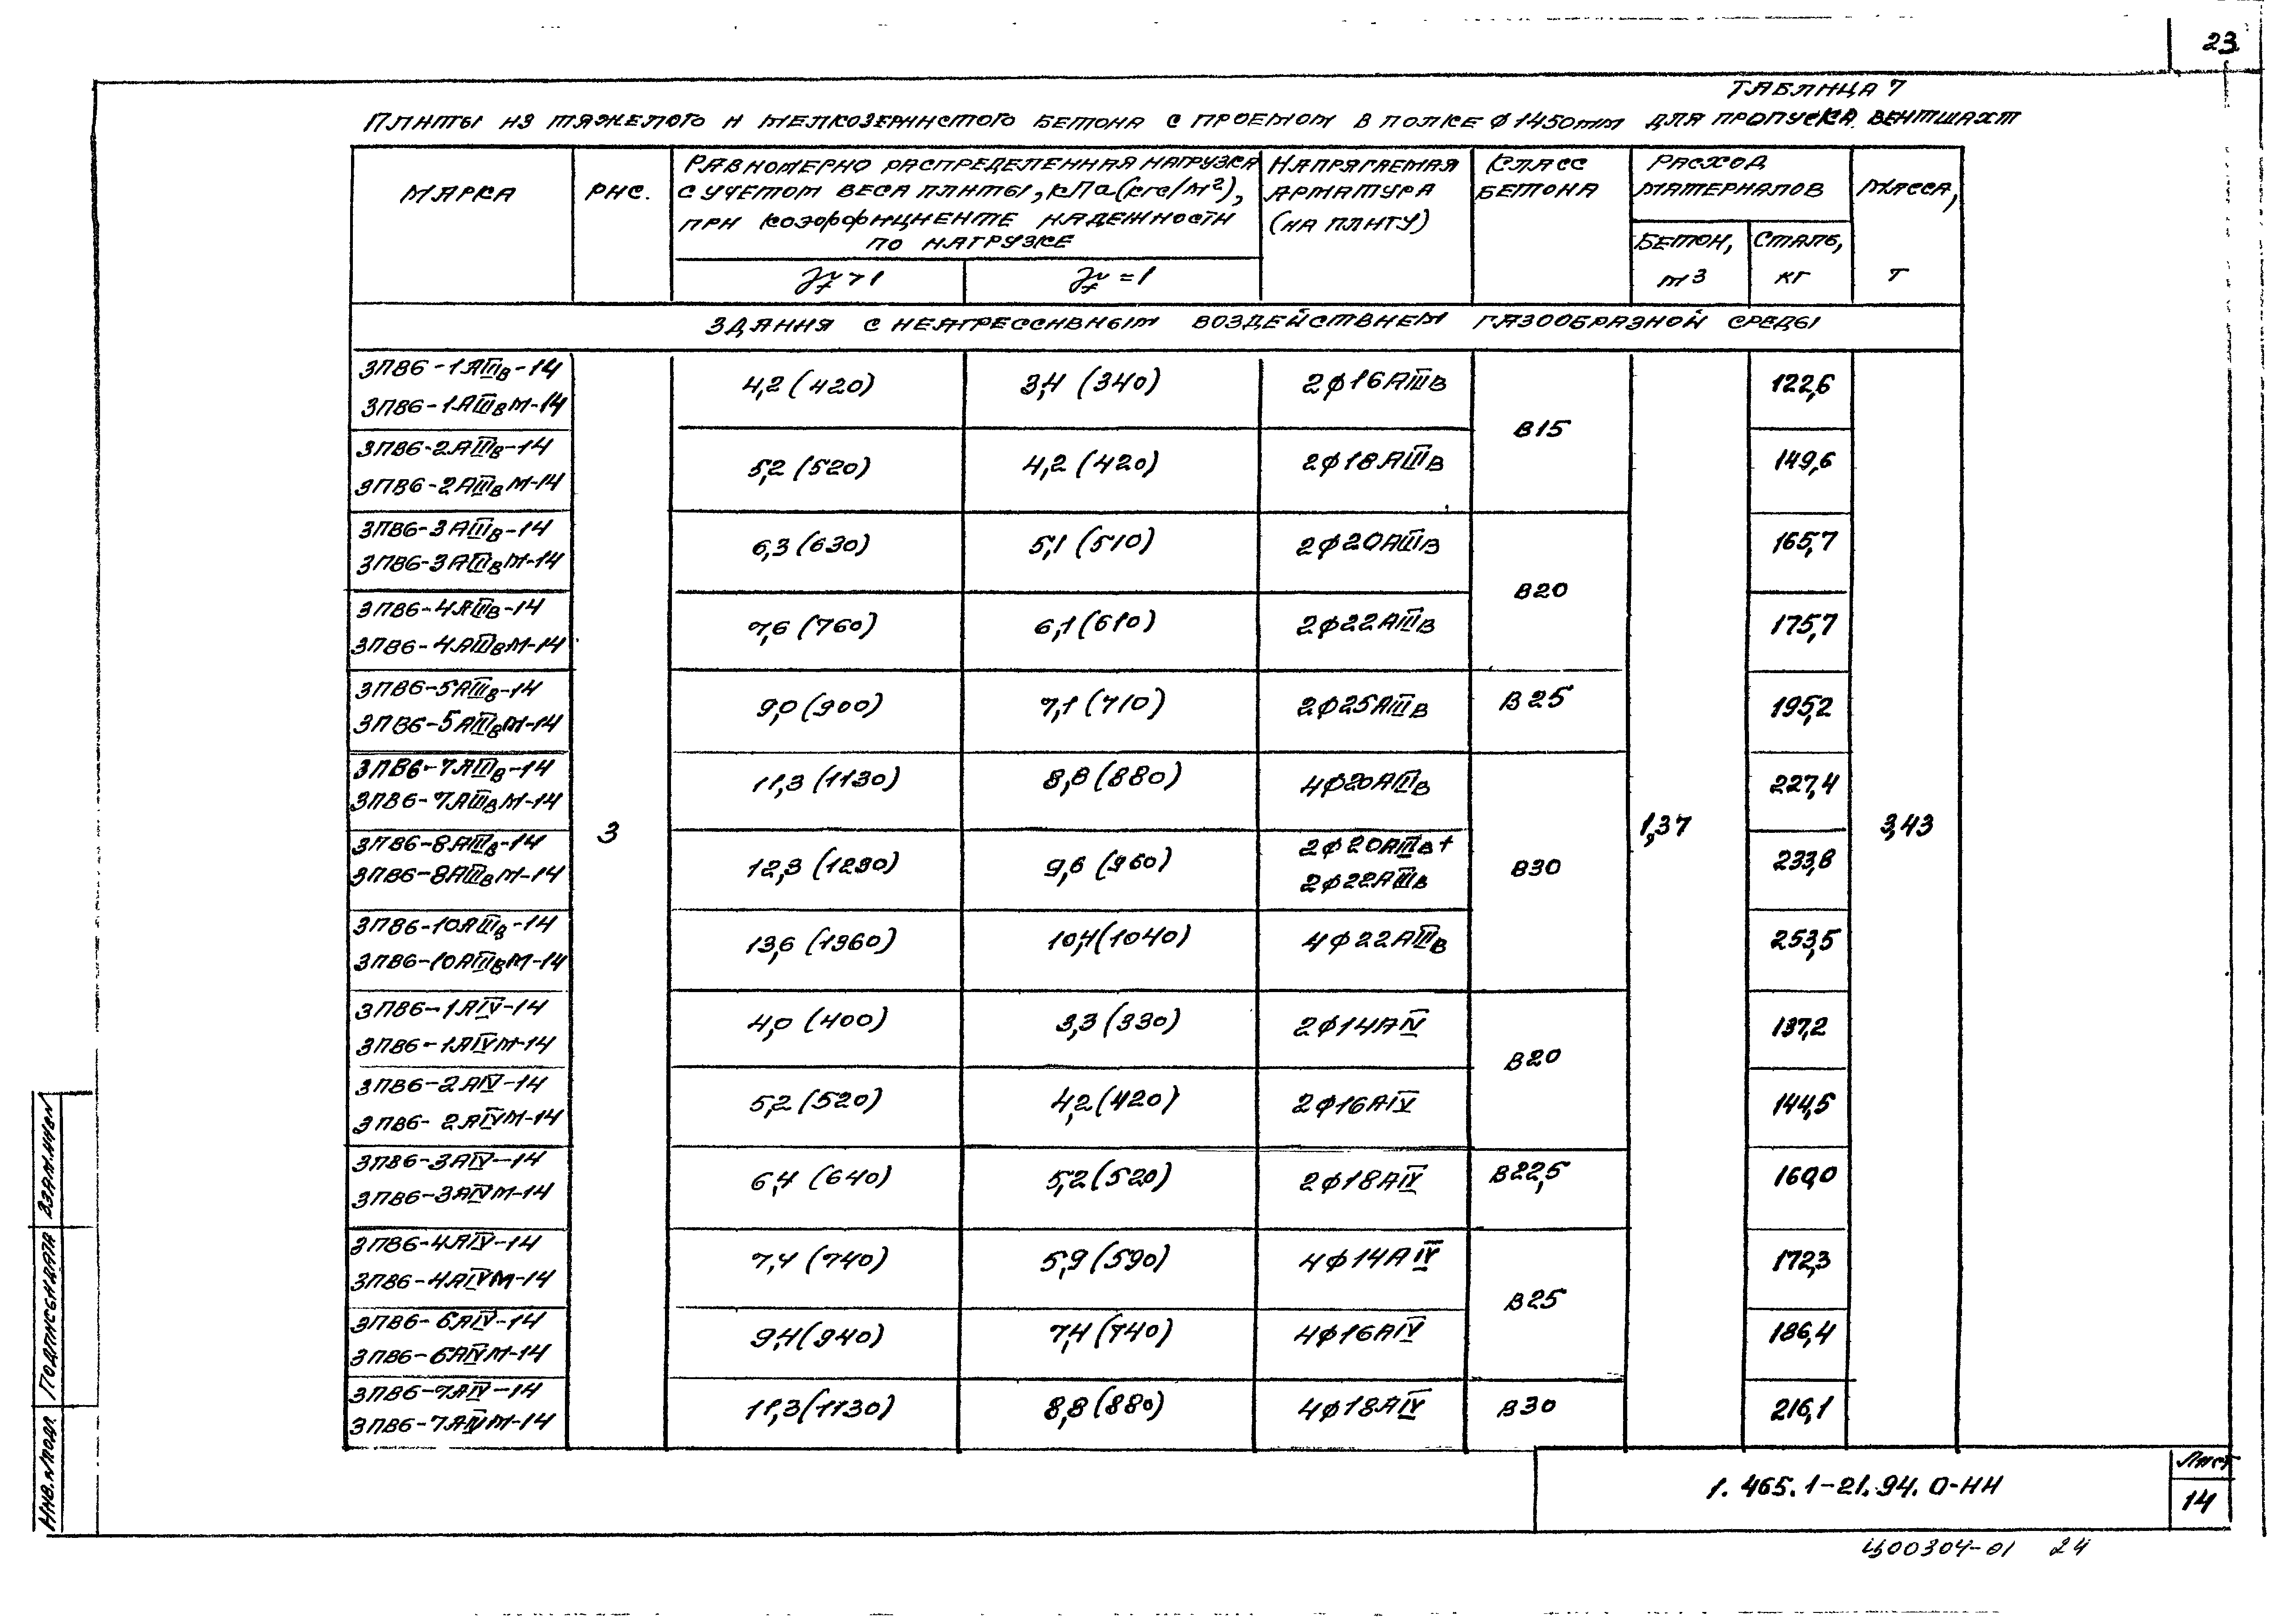 23
ТАБЛИЦА 7
ПЛИТЫ ИЗ ТЯЖЕЛОГО И МЕЛКОЗЕРНИСТОГО БЕТОНА С ПРОЕМОМ В ПОЛКЕ Ø1450мм ДЛЯ ПРОПУСКА ВЕНТШАХТ
МАРКА
РИС.
РАВНОМЕРНО РАСПРЕДЕЛЕННАЯ НАГРУЗКА
С УЧЕТОМ ВЕСА ПЛИТЫ, кПа (кгс/м²),
ПРИ КОЭФФИЦИЕНТЕ НАДЕЖНОСТИ
ПО НАГРУЗКЕ
γf > 1
γf = 1
НАПРЯГАЕМАЯ
АРМАТУРА
(НА ПЛИТУ)
КЛАСС
БЕТОНА
РАСХОД
МАТЕРИАЛОВ
БЕТОН,
м³
СТАЛЬ,
кг
МАССА,
т
ЗДАНИЯ С НЕАГРЕССИВНЫМ ВОЗДЕЙСТВИЕМ ГАЗООБРАЗНОЙ СРЕДЫ
3ПВ6-1АIIIв-14
3ПВ6-1АIIIвМ-14
4,2 (420) 3,4 (340) 2Ø16АIIIв В15 122,6
3ПВ6-2АIIIв-14
3ПВ6-2АIIIвМ-14
5,2 (520) 4,2 (420) 2Ø18АIIIв 149,6
3ПВ6-3АIIIв-14
3ПВ6-3АIIIвМ-14
6,3 (630) 5,1 (510) 2Ø20АIIIв В20 165,7
3ПВ6-4АIIIв-14
3ПВ6-4АIIIвМ-14
7,6 (760) 6,1 (610) 2Ø22АIIIв 175,7
3ПВ6-5АIIIв-14
3ПВ6-5АIIIвМ-14
9,0 (900) 7,1 (710) 2Ø25АIIIв В25 195,2
3ПВ6-7АIIIв-14
3ПВ6-7АIIIвМ-14
11,3 (1130) 8,8 (880) 4Ø20АIIIв 227,4
3 1,37 3,43
3ПВ6-8АIIIв-14
3ПВ6-8АIIIвМ-14
12,3 (1230) 9,6 (960) 2Ø20АIIIв+
2Ø22АIIIв В30 233,8
3ПВ6-10АIIIв-14
3ПВ6-10АIIIвМ-14
13,6 (1360) 10,4 (1040) 4Ø22АIIIв 253,5
3ПВ6-1АIV-14
3ПВ6-1АIVМ-14
4,0 (400) 3,3 (330) 2Ø14АIV В20 137,2
3ПВ6-2АIV-14
3ПВ6-2АIVМ-14
5,2 (520) 4,2 (420) 2Ø16АIV 144,5
3ПВ6-3АIV-14
3ПВ6-3АIVМ-14
6,4 (640) 5,2 (520) 2Ø18АIV В22,5 160,0
3ПВ6-4АIV-14
3ПВ6-4АIVМ-14
7,4 (740) 5,9 (590) 4Ø14АIV В25 172,3
3ПВ6-6АIV-14
3ПВ6-6АIVМ-14
9,4 (940) 7,4 (740) 4Ø16АIV 186,4
3ПВ6-7АIV-14
3ПВ6-7АIVМ-14
11,3 (1130) 8,8 (880) 4Ø18АIV В30 216,1
ИНВ.№ПОДЛ. ПОДПИСЬ И ДАТА ВЗАМ.ИНВ№
1.465.1-21.94.0-НИ
Лист
14
Ц00304-01 24